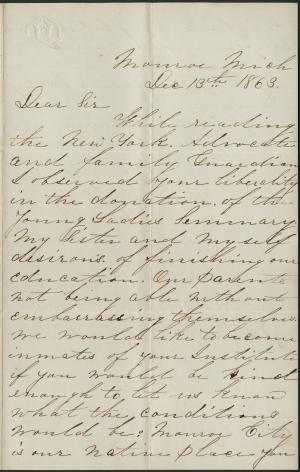 Monroe Mich
Dec 13th 1863.
Dear Sir
While reading
the New York. Advocate
and family Guardian
I observed your liberality
in the donation. of the
Young Ladies Seminary
My Sister and Myself
desirons. of finishing our
education. Our parents
not being able without
embarrassing themselves.
we would like to become
inmates of your Institute
if you would be kind
enough to, let us know
what the conditions
would be? Monroe City
is our native place you